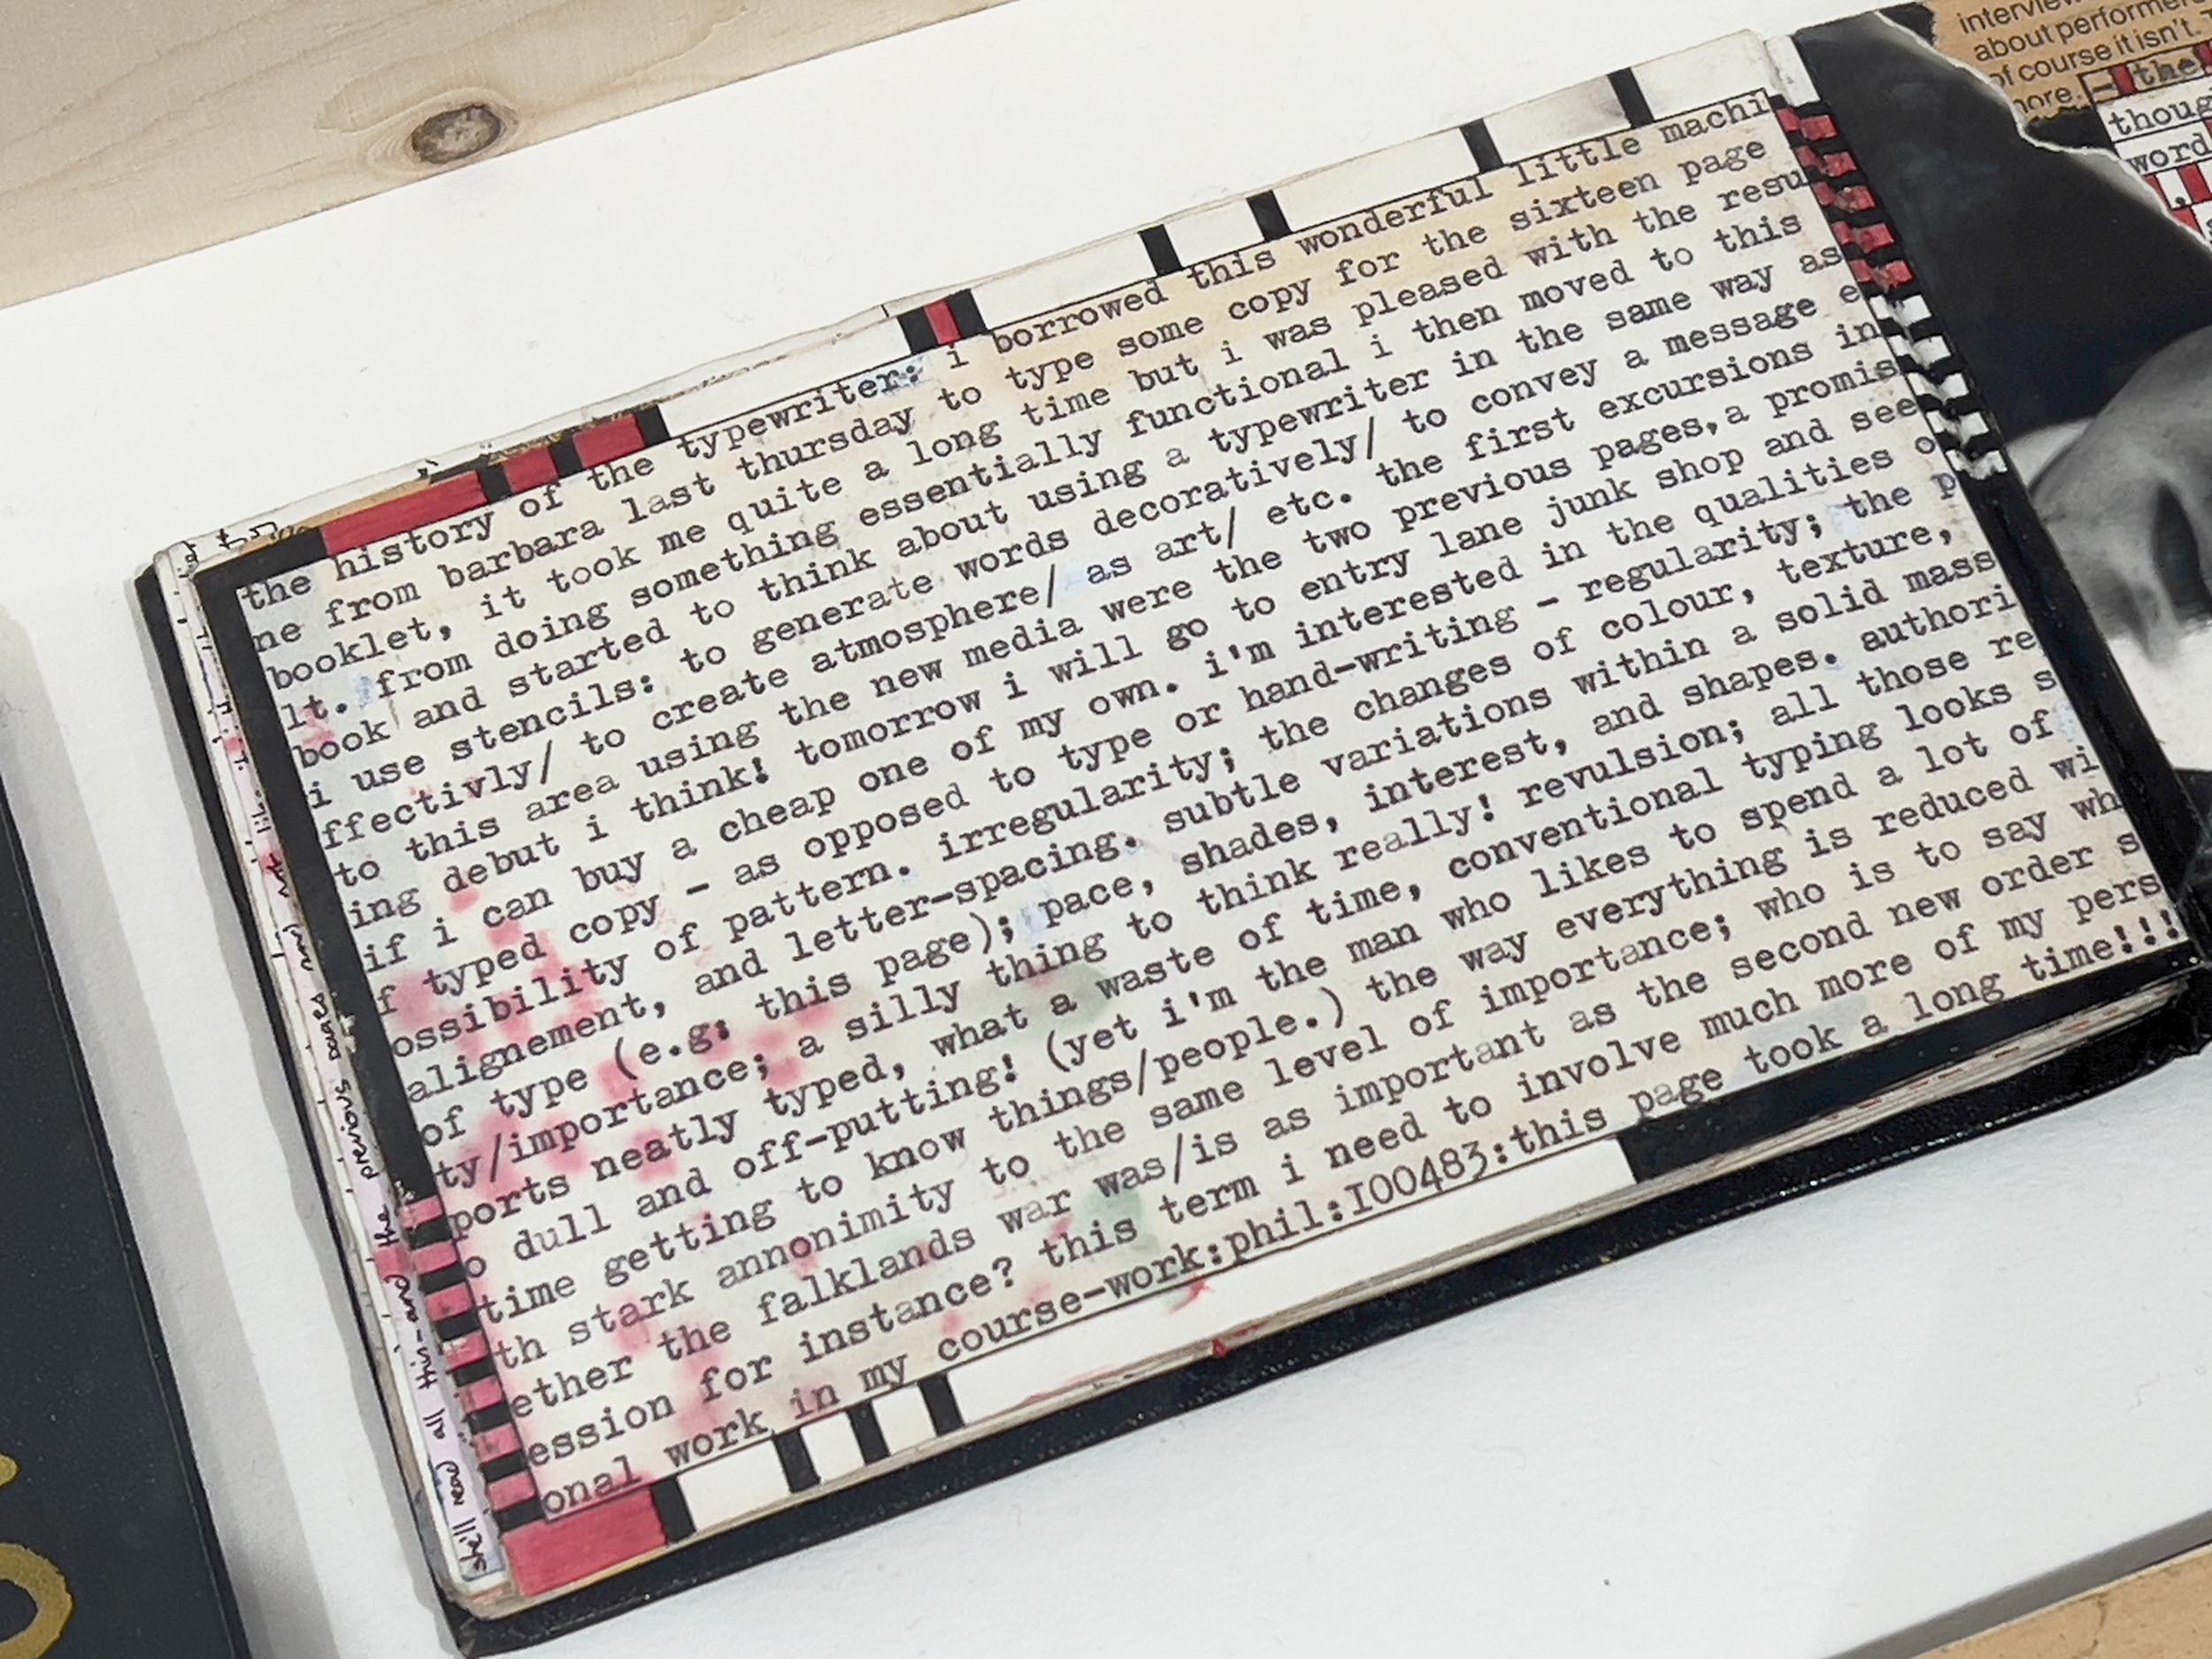 the history of the typewriter: i borrowed this wonderful little machi
ne from barbara last thursday to type some copy for the sixteen page
booklet, it took me quite a long time but i was pleased with the resu
lt. from doing something essentially functional i then moved to this
book and started to think about using a typewriter in the same way as
i use stencils: to generate words decoratively/ to convey a message e
ffectivly/ to create atmosphere/ as art/ etc. the first excursions in
to this area using the new media were the two previous pages, a promis
ing debut i think! tomorrow i will go to entry lane junk shop and see
if i can buy a cheap one of my own. i'm interested in the qualities o
f typed copy - as opposed to type or hand-writing - regularity; the p
ossibility of pattern. irregularity; the changes of colour, texture,
alignement, and letter-spacing. subtle variations within a solid mass
of type (e.g: this page); pace, shades, interest, and shapes. authori
ty/importance; a silly thing to think really! revulsion; all those re
ports neatly typed, what a waste of time, conventional typing looks s
o dull and off-putting! (yet i'm the man who likes to spend a lot of
time getting to know things/people.) the way everything is reduced wi
th stark annonimity to the same level of importance; who is to say wh
ether the falklands war was/is as important as the second new order s
ession for instance? this term i need to involve much more of my pers
onal work in my course-work:phil:I00483:this page took a long time!!!
she'll now all this - and the previous pages and not
interview
about performer
of course it isn't. T
more.
- the
thoug
word